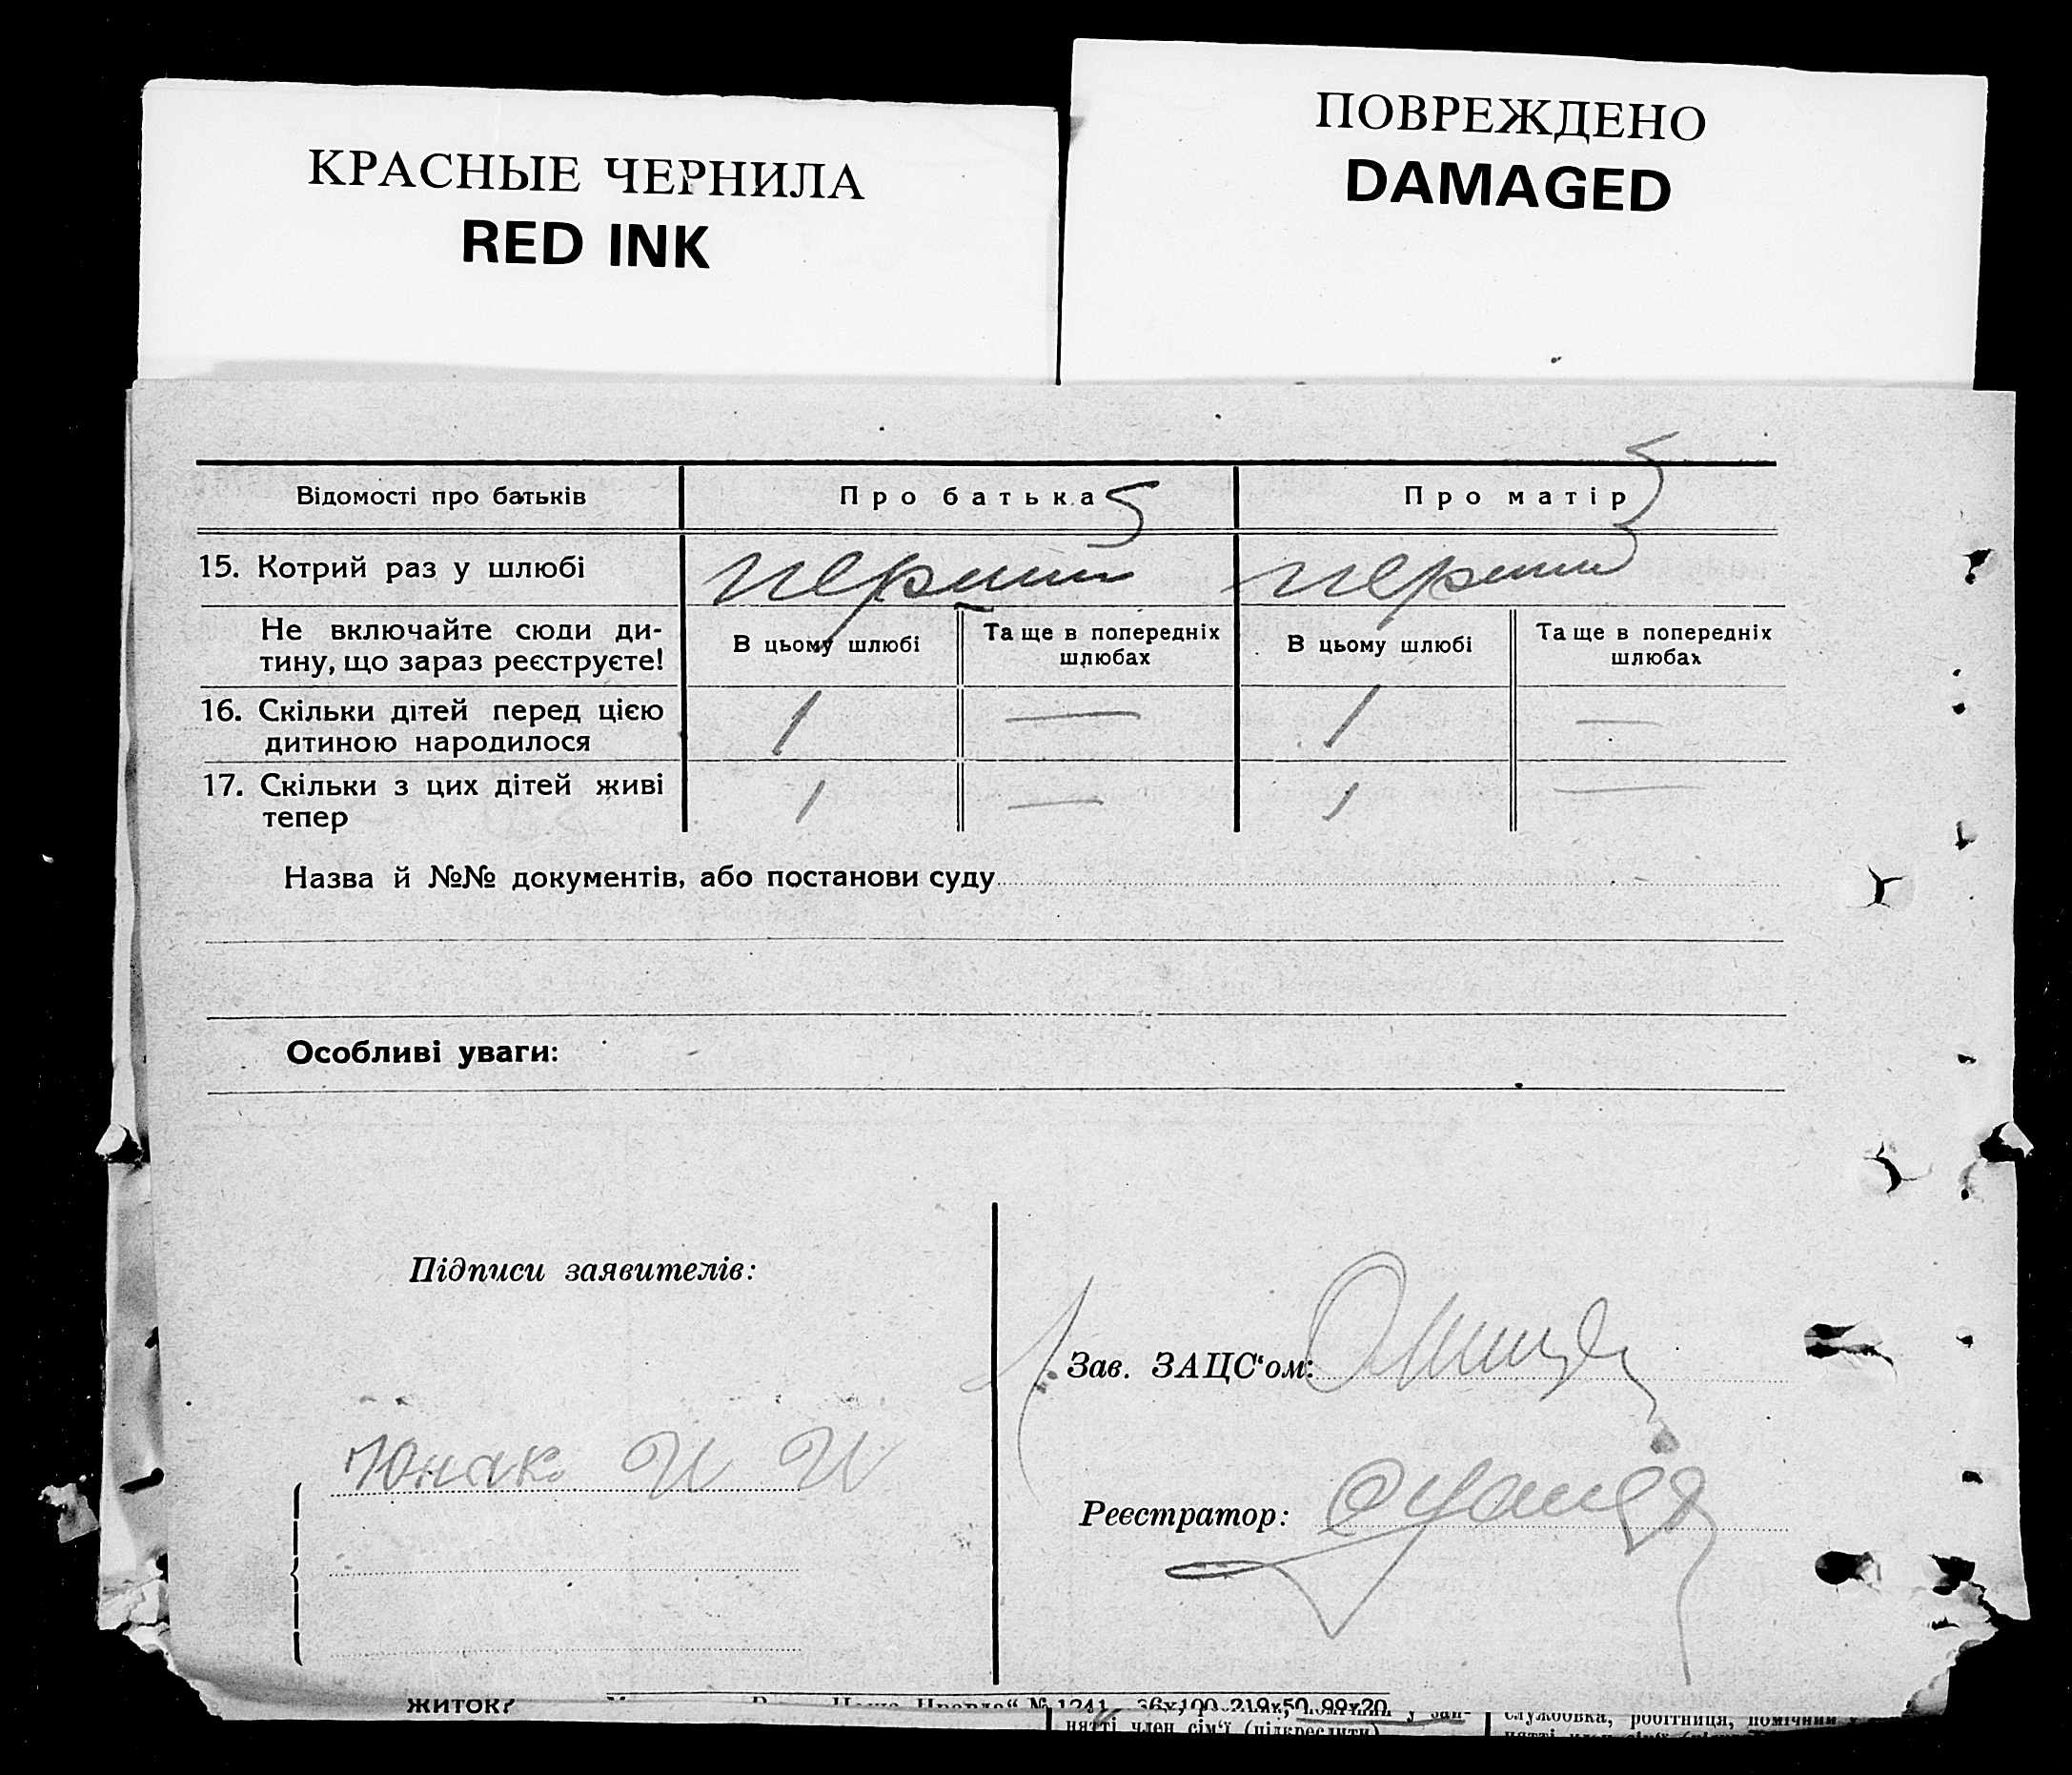 КРАСНЫЕ ЧЕРНИЛА
RED INK
ПОВРЕЖДЕНО
DAMAGED
Відомості про батьків
Про батька
Про матір
15. Котрий раз у шлюбі
перший
перший
Не включайте сюди ди-
тину, що зараз реєструєте!
В цьому шлюбі
Та ще в попередніх
шлюбах
В цьому шлюбі
Та ще в попередніх
шлюбах
16. Скільки дітей перед цією
дитиною народилося
1 — 1 —
17. Скільки з цих дітей живі
тепер
1 — 1 —
Назва й №№ документів, або постанови суду
Особливі уваги:
Підписи заявителів:
Юнак И И
Зав. ЗАЦС‘ом:
Реєстратор:
житок?
№ 1241
нятті член сім‘ї (підкреслити)
службовка, робітниця, помічний